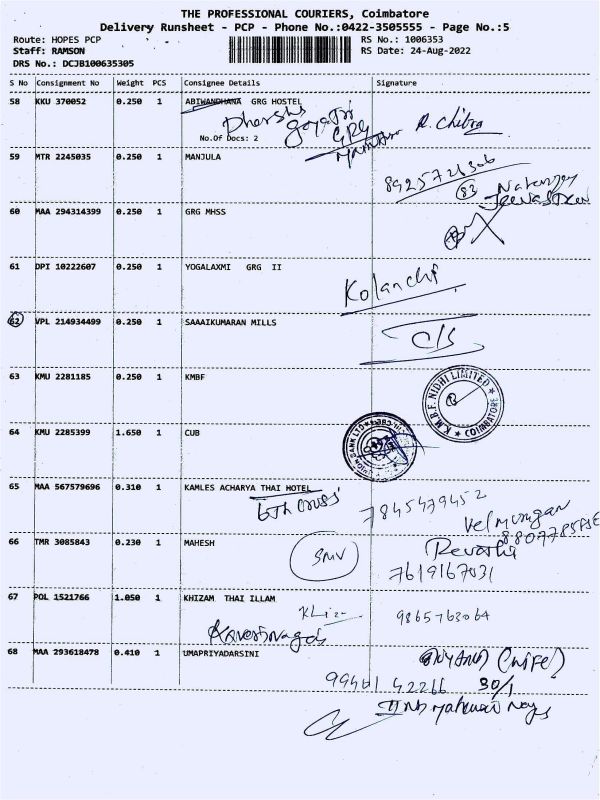 THE PROFESSIONAL COURIERS, Coimbatore
Delivery Runsheet - PCP - Phone No.:0422-3505555 - Page No.:5
Route: HOPES PCP RS No.: 1006353
Staff: RAMSON RS Date: 24-Aug-2022
DRS No.: DCJB100635305
S No Consignment No Weight PCS Consignee Details Signature
58 KKU 370052 0.250 1 ABIWANDHANA GRG HOSTEL
Dharshs gayatri
GRG
R. Chitra
No.Of Docs: 2
59 MTR 2245035 0.250 1 MANJULA
8925726306
83
60 MAA 294314399 0.250 1 GRG MHSS
61 DPI 10222607 0.250 1 YOGALAXMI GRG II
Kolanchi
62 VPL 214934499 0.250 1 SAAAIKUMARAN MILLS
C/S
63 KMU 2281185 0.250 1 KMBF
K.M.B.F. NIDHI LIMITED
COIMBATORE
64 KMU 2285399 1.650 1 CUB
65 MAA 567579696 0.310 1 KAMLES ACHARYA THAI HOTEL
6th cross 7845479452
Velmurugan
66 TMR 3085843 0.230 1 MAHESH
SMV
Revathi
7619167031
67 POL 1521766 1.050 1 KHIZAM THAI ILLAM
9865763064
68 MAA 293618478 0.410 1 UMAPRIYADARSINI
(WIFE)
99461 42266 30/1